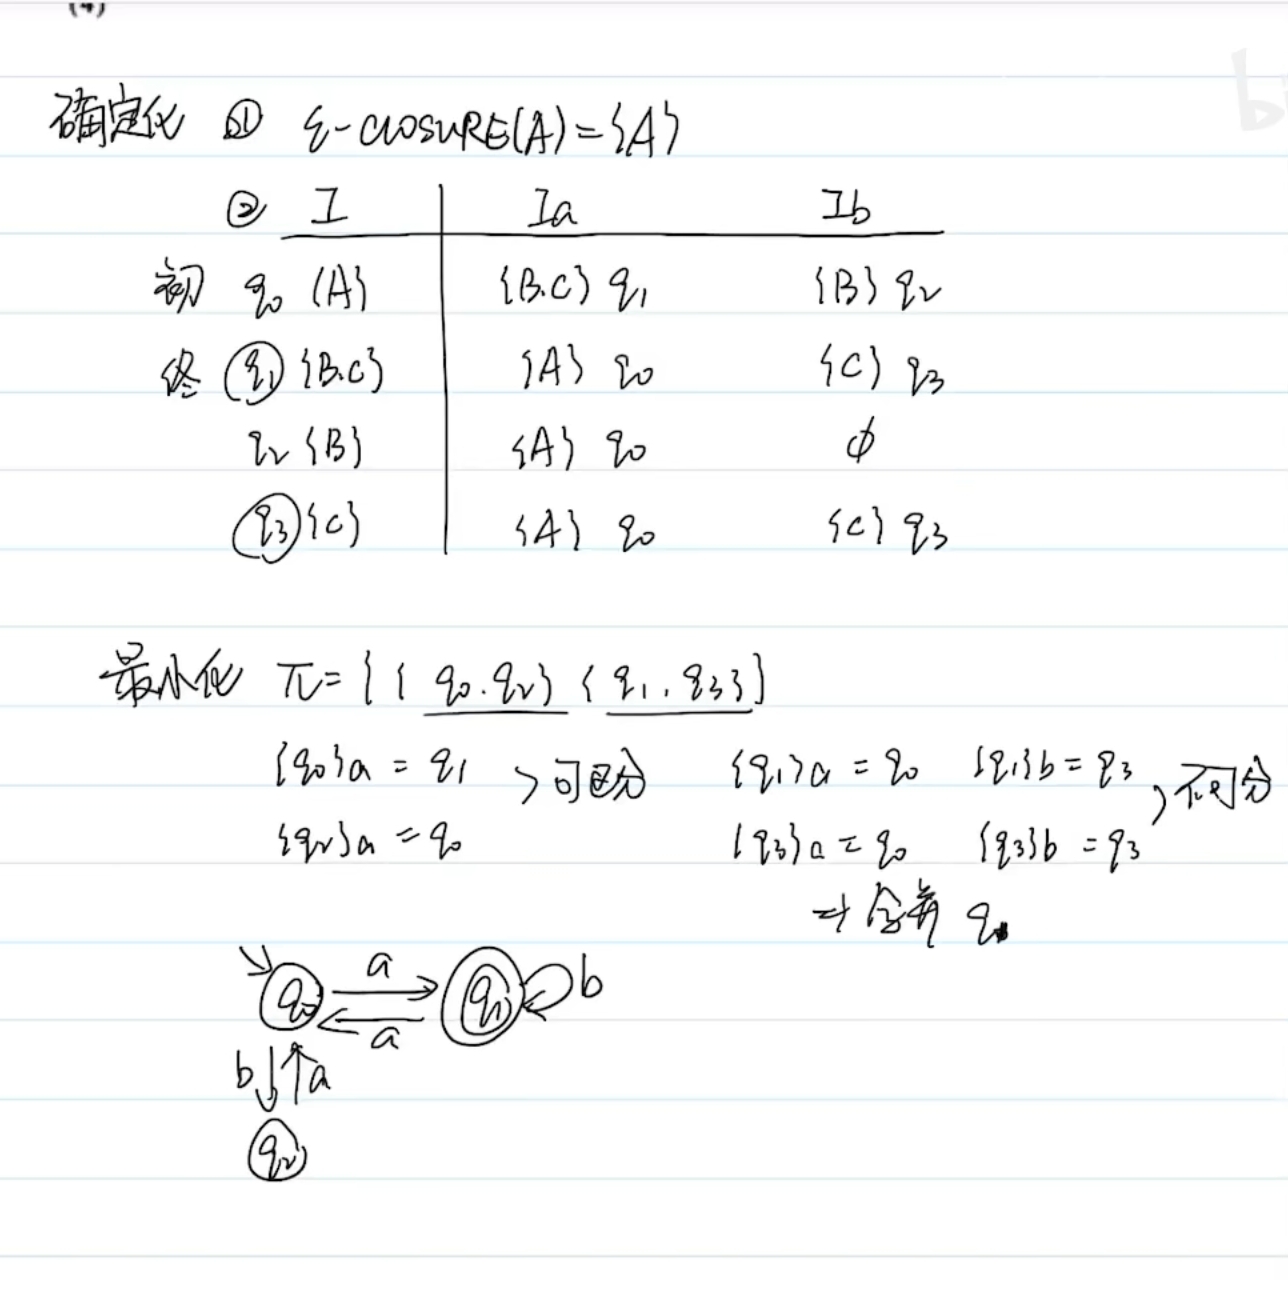 (4)
确定化 ① ε-CLOSURE(A)={A}
② I Ia Ib
初 q0 {A} {B.C} q1 {B} q2
终 q1 {B.C} {A} q0 {C} q3
q2 {B} {A} q0 ϕ
q3 {C} {A} q0 {C} q3
最小化 π={{q0.q2} {q1.q3}}
{q0}a = q1 >可区分 {q1}a = q0 {q1}b = q3 >不可分
{q2}a = q0 {q3}a = q0 {q3}b = q3
⇒合并 q1
q0 a q1 b
a
b a
q2